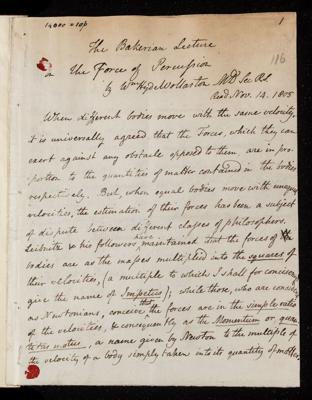 14000 = 10p
1
116
The Bakerian Lecture
on the Force of Percussion
by Wm Hyde Wollaston MD Sec RS.
Read Nov. 14. 1805
When different bodies move with the same velocity,
it is universally agreed that the Forces, which they can
exert against any obstacle opposed to them are in pro-
portion to the quantities of matter contained in the bodies
respectively. But, when equal bodies move with unequal
velocities, the estimation of their forces has been a subject
of dispute between different classes of philosophers.
Leibnitz & his followers have maintained that the forces of
bodies are as the masses multiplied into the squares of
their velocities, (a multiple to which I shall for conciseness
give the name of Impetus); while those, who are considered
as Newtonians, conceive that the forces are in the simple ratio
of the velocities, & consequently as the Momentum or quan-
titas motus, a name given by Newton to the multiple of
the velocity of a body simply taken into its quantity of matter.